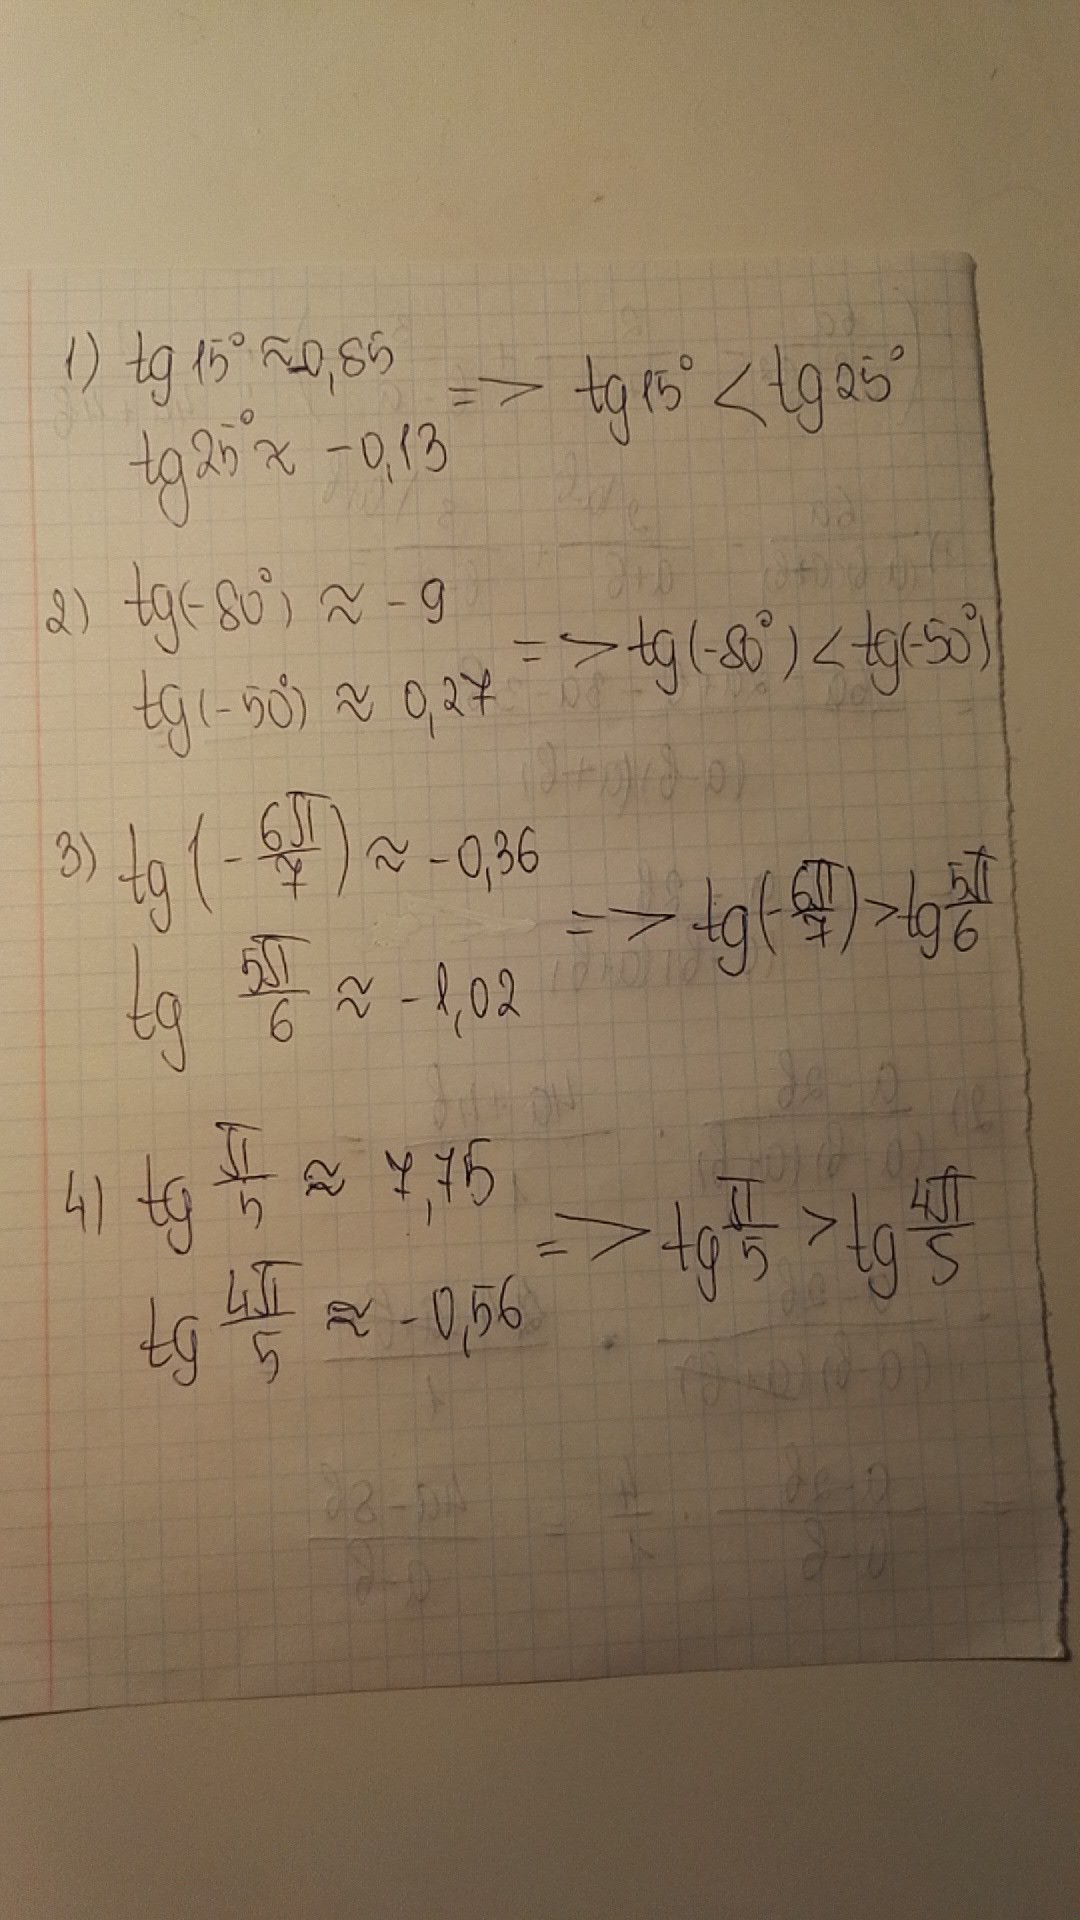 1) tg 15° ≈ -0,85
tg 25° ≈ -0,13
=> tg 15° < tg 25°
2) tg(-80°) ≈ -9
tg(-50°) ≈ 0,27
=> tg(-80°) < tg(-50°)
3) tg(-6π/7) ≈ -0,36
tg 5π/6 ≈ -1,02
=> tg(-6π/7) > tg 5π/6
4) tg π/5 ≈ 7,75
tg 4π/5 ≈ -0,56
=> tg π/5 > tg 4π/5